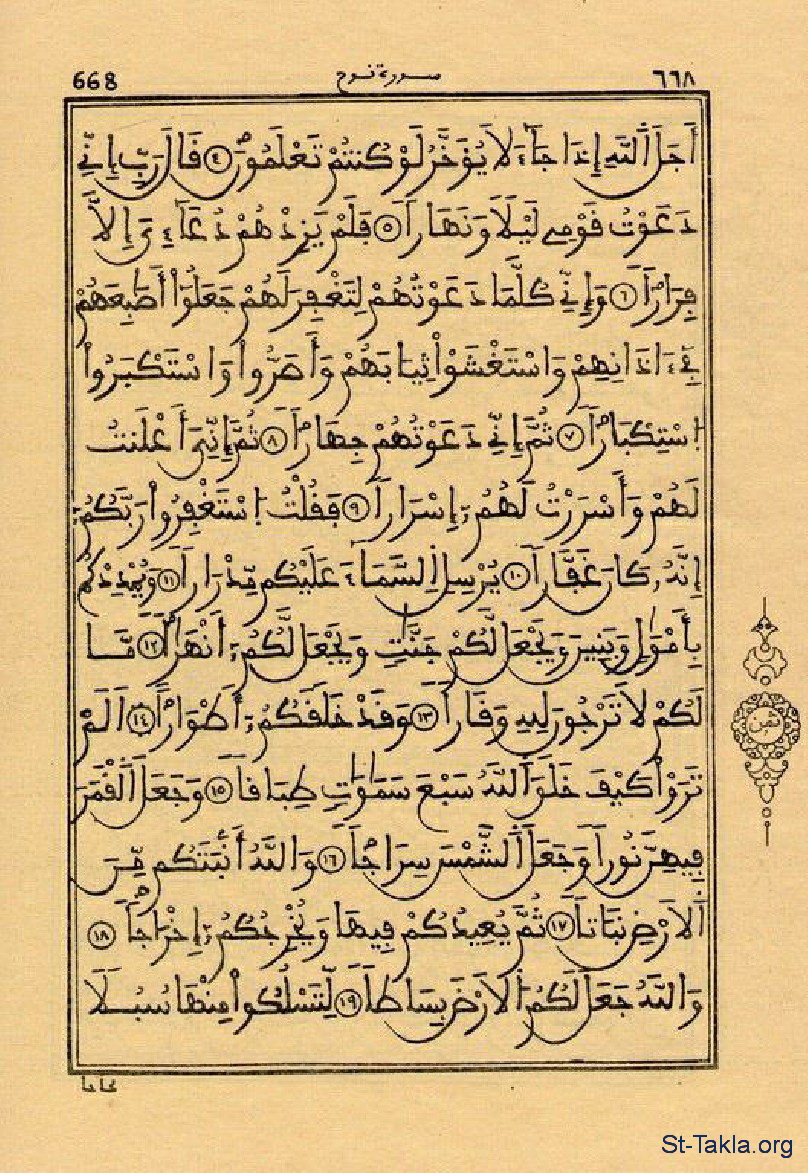 668 سورة نوح ٦٦٨
أَجَلَ اَ۬للَّهِ إِذَا جَآءَ لَا يُؤَخَّرُ لَوْ كُنتُمْ تَعْلَمُونَۖ ٤ قَالَ رَبِّ إِنِّے
دَعَوْتُ قَوْمِے لَيْلاٗ وَنَهَاراٗ ٥ فَلَمْ يَزِدْهُمْ دُعَآءِيَ إِلَّا
فِرَاراٗ ٦ وَإِنِّے كُلَّمَا دَعَوْتُهُمْ لِتَغْفِرَ لَهُمْ جَعَلُوٓاْ أَصَٰبِعَهُمْ
فِےٓ ءَاذَانِهِمْ وَاسْتَغْشَوْاْ ثِيَابَهُمْ وَأَصَرُّواْ وَاسْتَكْبَرُواْ
اُ۪سْتِكْبَاراٗ ٧ ثُمَّ إِنِّے دَعَوْتُهُمْ جِهَاراٗ ٨ ثُمَّ إِنِّيَ أَعْلَنتُ
لَهُمْ وَأَسْرَرْتُ لَهُمُۥٓ إِسْرَاراٗ ٩ فَقُلْتُ اُ۪سْتَغْفِرُواْ رَبَّكُمُۥٓ
إِنَّهُۥ كَانَ غَفَّاراٗ ١٠ يُرْسِلِ اِ۬لسَّمَآءَ عَلَيْكُم مِّدْرَاراٗ ١١ وَيُمْدِدْكُم
بِأَمْوَٰلٖ وَبَنِينَ وَيَجْعَل لَّكُمْ جَنَّٰتٖ وَيَجْعَل لَّكُمُۥٓ أَنْهَٰراٗ ١٢ مَّا
لَكُمْ لَا تَرْجُونَ لِلهِ وَقَاراٗ ١٣ وَقَدْ خَلَقَكُمُۥٓ أَطْوَاراًۖ ١٤ اَلَمْ
تَرَوْاْ كَيْفَ خَلَقَ اَ۬للَّهُ سَبْعَ سَمَٰوَٰتٖ طِبَاقاٗ ١٥ وَجَعَلَ اَ۬لْقَمَرَ
فِيهِنَّ نُوراٗ وَجَعَلَ اَ۬لشَّمْسَ سِرَاجاٗ ١٦ وَاللَّهُ أَنۢبَتَكُم مِّنَ
اَ۬لَارْضِ نَبَاتاٗ ١٧ ثُمَّ يُعِيدُكُمْ فِيهَا وَيُخْرِجُكُمُۥٓ إِخْرَاجاٗۖ ١٨
وَاللَّهُ جَعَلَ لَكُمُ اُ۬لَارْضَ بِسَاطاٗ ١٩ لِّتَسْلُكُواْ مِنْهَا سُبُلاٗ
فجاجا
ثمن
St-Takla.org